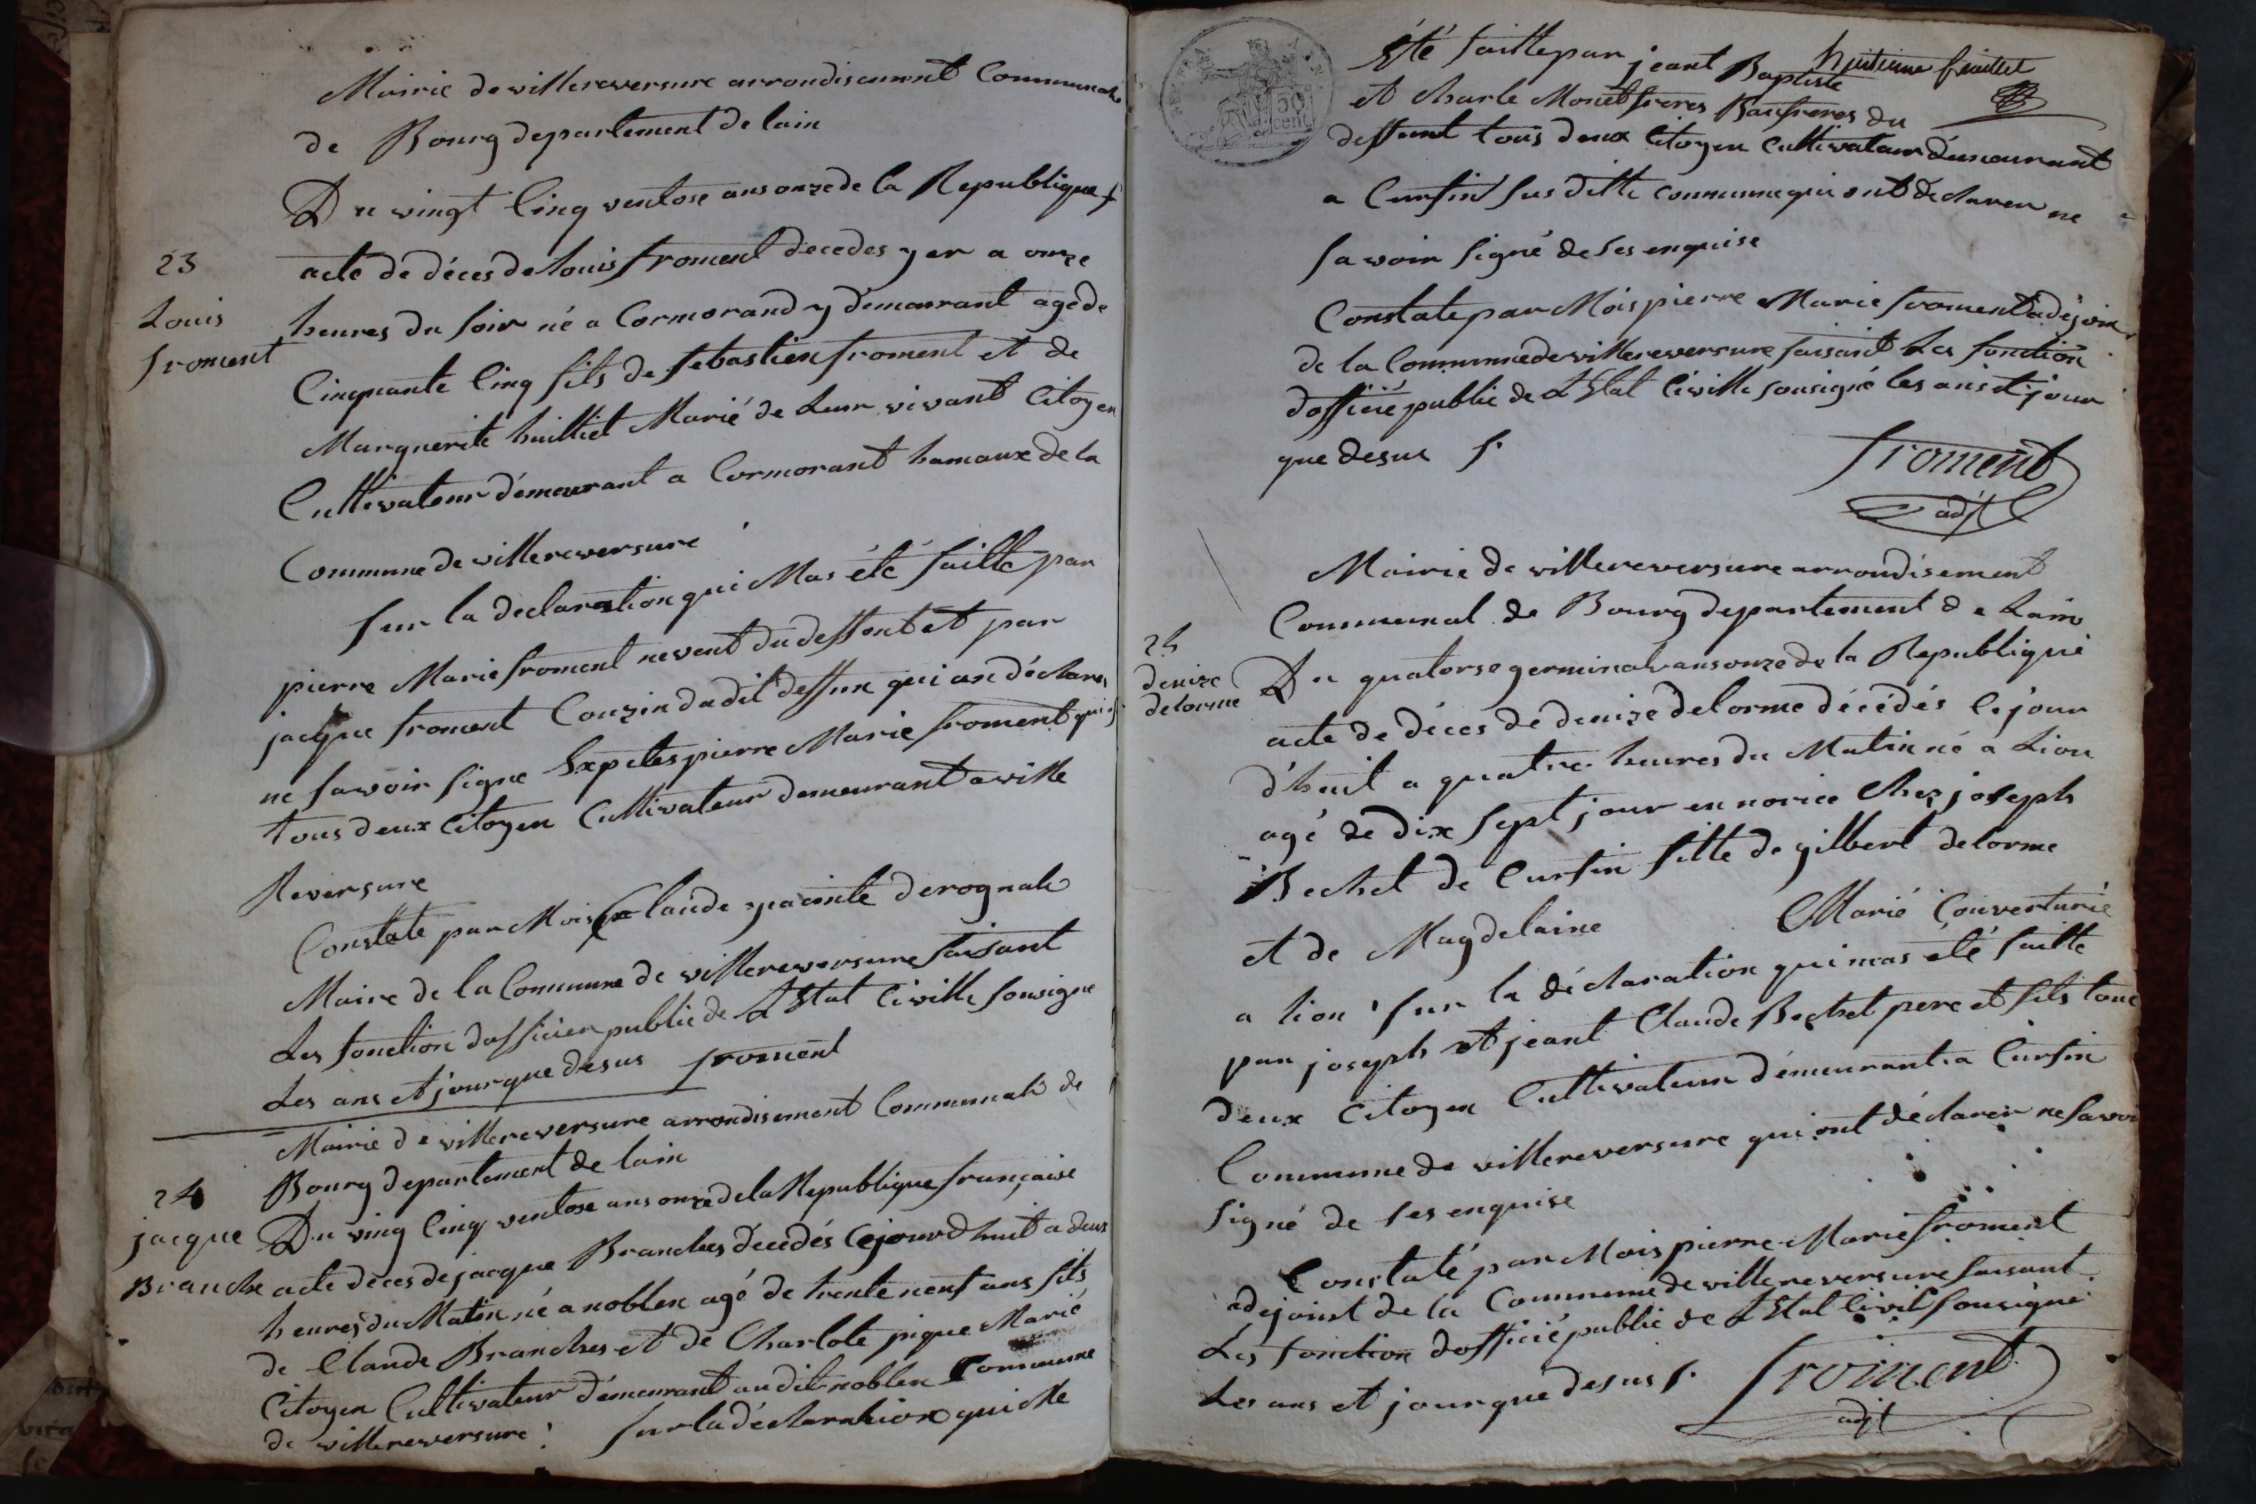 Mairie de villereversure arrondisement Communale
de Bourg departement de lain
Du vingt Cinq ventose ans onze de la Republique f
23
Louis
froment
acte de déces de Louis froment decedes yer a onze
heures du soir né a Cormorand y démeurant agé de
Cinquante Cinq fils de sebastien froment et de
Marguerite huilliet Marié de Leur vivant Citoyen
Cultivateur démeurant a Cormorant hamaux de la
Commune de villereversure
sur la declaration qui Mas été faitte par
pierre Marie froment nevent du deffont et par
jacque froment Couzin dudit deffun qui on déclares
ne savoir signe Exptes pierre Marie froment qui
tous deux Citoyen Cultivateur demeurant a ville
Reversure
Constate par Mois Claude yacinte derognale
Maire de la Commune de villereversure faisant
Les fonction dofficier public de LEtat Civille sousigne
Les ans et jour que desus froment
Mairie de villereversure arrondisement Communale de
Bourg departement de lain
24
jacque
Branche
Du ving Cinq ventose ans onze de la Republique française
acte déces de jacque Branches décédés Cejourdhuit a deux
heures du Matin né a noblen agé de trente neuf ans fils
de Claude Branches et de Charlote pique Marié
Citoyen Cultivateur démeurant audit noblen Commune
de villereversure sur la déclaration qui Me
huitieme feuillet
Eté faitte par jeant Baptiste
et Charle Monet freres Baufreres du
deffunt tous deux Citoyen Cultivateur démeurant
a Cursin susditte commune qui ont déclarer ne
savoir signé de ses enquise
Constate par Mois pierre Marie froment adejoin
de la Commune de villereversure faisant Les fonction
dofficié public de LEtat Civille sousigné les ans et jour
que desus f.
froment
adjt
Mairie de villereversure arrondisement
Communal de Bourg departement de Lain
25
denize
delorme
Du quatorse germinal ans onze de la Republique
acte de déces de denize delorme décédés Cejour
d'huit a quatre heures du Matin né a Lion
agé de dix sept jour en norice Chez joseph
Bechet de Cursin fille de gilbert delorme
et de Magdelaine Marié Couverturié
a lion sur la déclaration qui mas été faitte
par joseph et jeant Claude Bechet pere et fils tous
deux Citoyen Cultivateur démeurant a Cursin
Commune de villereversure qui ont déclarer ne Savoir
signé de ses enquise
Constaté par Mois pierre Marie froment
adejoint de la Commune de villereversure faisant
Les fonction dofficié public de LEtat Civil sousigné
Les ans et jour que desus f. froment
adjt